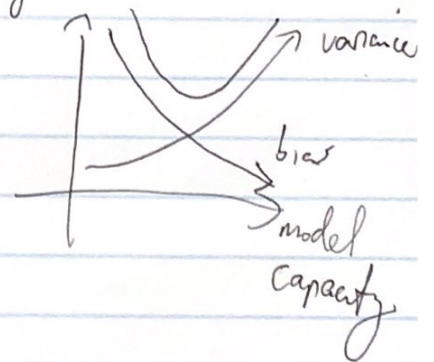 variance
bias
model
capacity